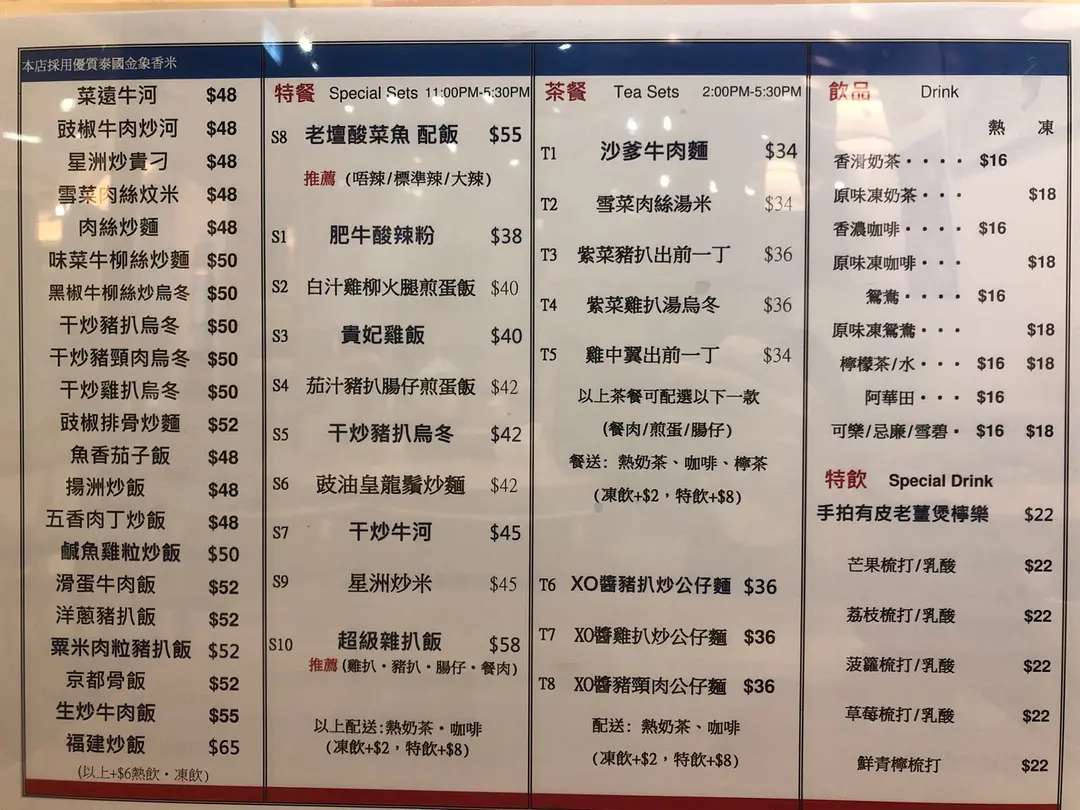 本店採用優質泰國金象香米
菜遠牛河 $48
豉椒牛肉炒河 $48
星洲炒貴刁 $48
雪菜肉絲炆米 $48
肉絲炒麵 $48
味菜牛柳絲炒麵 $50
黑椒牛柳絲炒烏冬 $50
干炒豬扒烏冬 $50
干炒豬頸肉烏冬 $50
干炒雞扒烏冬 $50
豉椒排骨炒麵 $52
魚香茄子飯 $48
揚洲炒飯 $48
五香肉丁炒飯 $48
鹹魚雞粒炒飯 $50
滑蛋牛肉飯 $52
洋蔥豬扒飯 $52
粟米肉粒豬扒飯 $52
京都骨飯 $52
生炒牛肉飯 $55
福建炒飯 $65
(以上+$6熱飲·凍飲)
特餐 Special Sets 11:00PM-5:30PM
S8 老壇酸菜魚 配飯 $55
推薦 (唔辣/標準辣/大辣)
S1 肥牛酸辣粉 $38
S2 白汁雞柳火腿煎蛋飯 $40
S3 貴妃雞飯 $40
S4 茄汁豬扒腸仔煎蛋飯 $42
S5 干炒豬扒烏冬 $42
S6 豉油皇龍鬚炒麵 $42
S7 干炒牛河 $45
S9 星洲炒米 $45
S10 超級雜扒飯 $58
推薦(雞扒·豬扒·腸仔·餐肉)
以上配送:熱奶茶·咖啡
(凍飲+$2，特飲+$8)
茶餐 Tea Sets 2:00PM-5:30PM
T1 沙爹牛肉麵 $34
T2 雪菜肉絲湯米 $34
T3 紫菜豬扒出前一丁 $36
T4 紫菜雞扒湯烏冬 $36
T5 雞中翼出前一丁 $34
以上茶餐可配選以下一款
(餐肉/煎蛋/腸仔)
餐送: 熱奶茶、咖啡、檸茶
(凍飲+$2，特飲+$8)
T6 XO醬豬扒炒公仔麵 $36
T7 XO醬雞扒炒公仔麵 $36
T8 XO醬豬頸肉公仔麵 $36
配送: 熱奶茶、咖啡
(凍飲+$2，特飲+$8)
飲品 Drink
熱 凍
香滑奶茶···· $16
原味凍奶茶··· $18
香濃咖啡···· $16
原味凍咖啡··· $18
鴛鴦···· $16
原味凍鴛鴦··· $18
檸檬茶/水··· $16 $18
阿華田··· $16
可樂/忌廉/雪碧· $16 $18
特飲 Special Drink
手拍有皮老薑煲檸樂 $22
芒果梳打/乳酸 $22
荔枝梳打/乳酸 $22
菠籮梳打/乳酸 $22
草莓梳打/乳酸 $22
鮮青檸梳打 $22